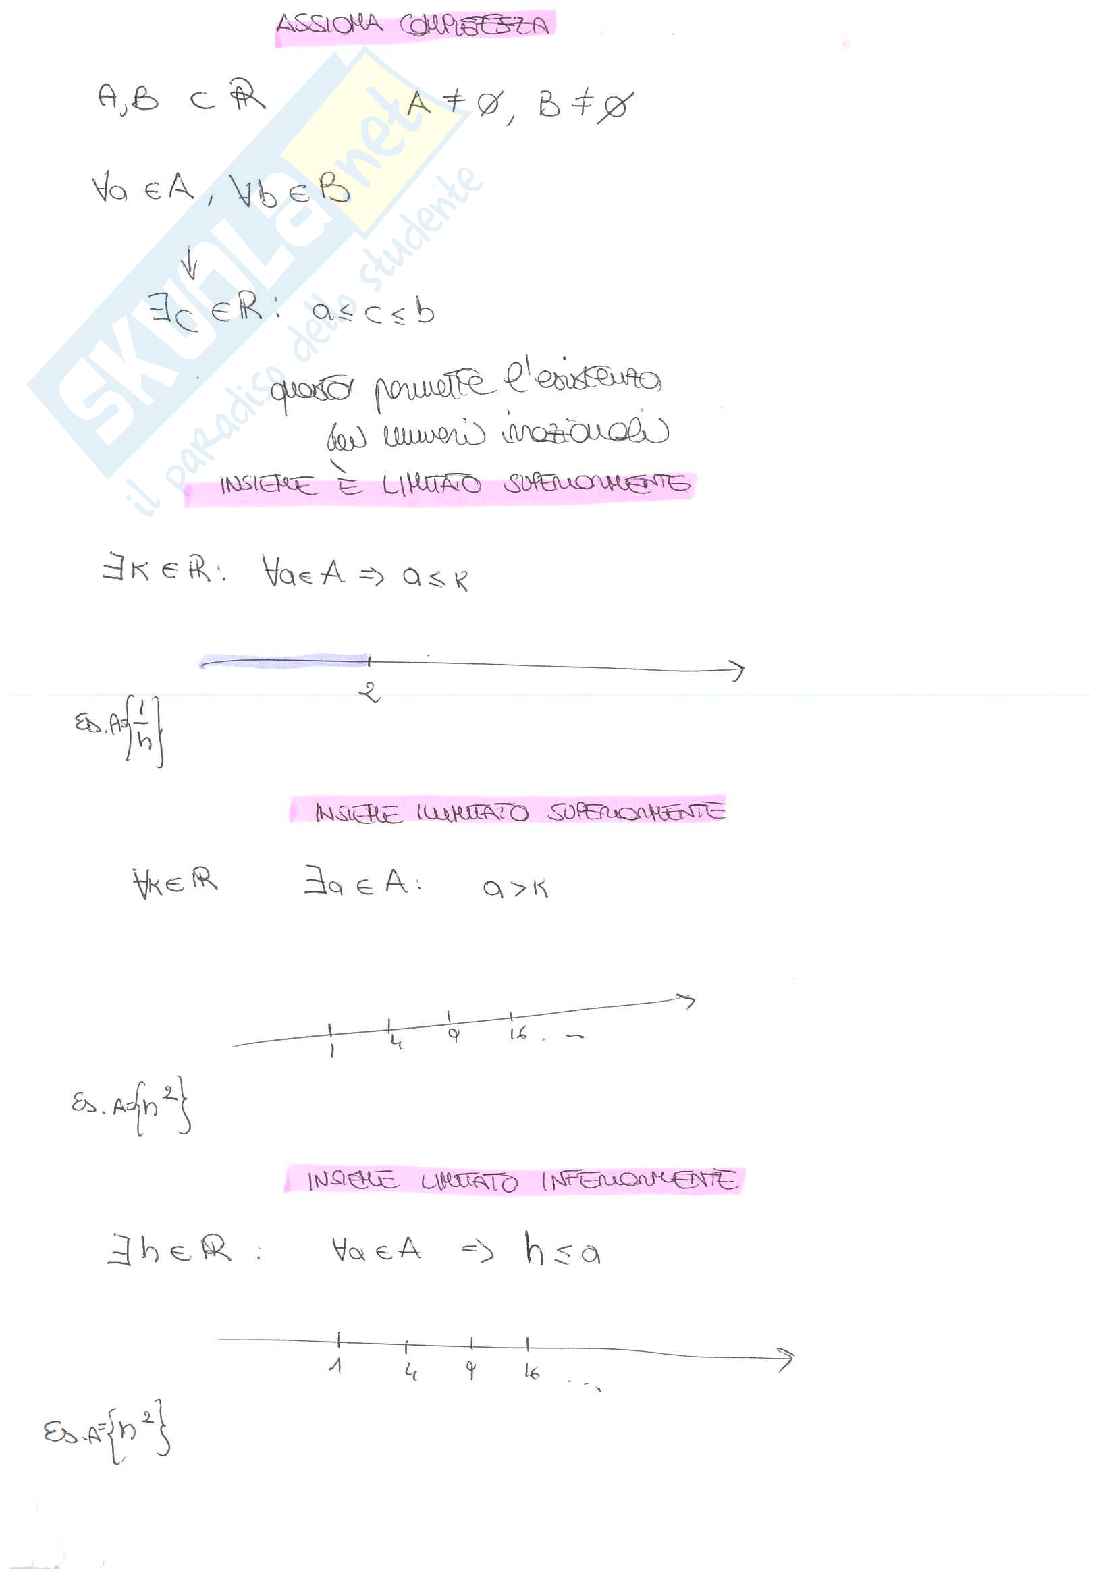 ASSIOMA COMPLETEZZA
A,B ⊂ ℝ A ≠ ∅, B ≠ ∅
∀a ∈ A, ∀b ∈ B
↓
∃c ∈ ℝ: a ≤ c ≤ b
questo permette l'esistenza
dei numeri irrazionali
INSIEME È LIMITATO SUPERIORMENTE
∃k ∈ ℝ: ∀a ∈ A ⇒ a ≤ k
2
Es. A={1/n}
INSIEME ILLIMITATO SUPERIORMENTE
∀k ∈ ℝ ∃a ∈ A: a > k
1 4 9 16 . ~
Es. A={n²}
INSIEME LIMITATO INFERIORMENTE
∃h ∈ ℝ: ∀a ∈ A ⇒ h ≤ a
1 4 9 16 ...
Es. A={n²}
SKUOLA.net
il paradiso dello studente